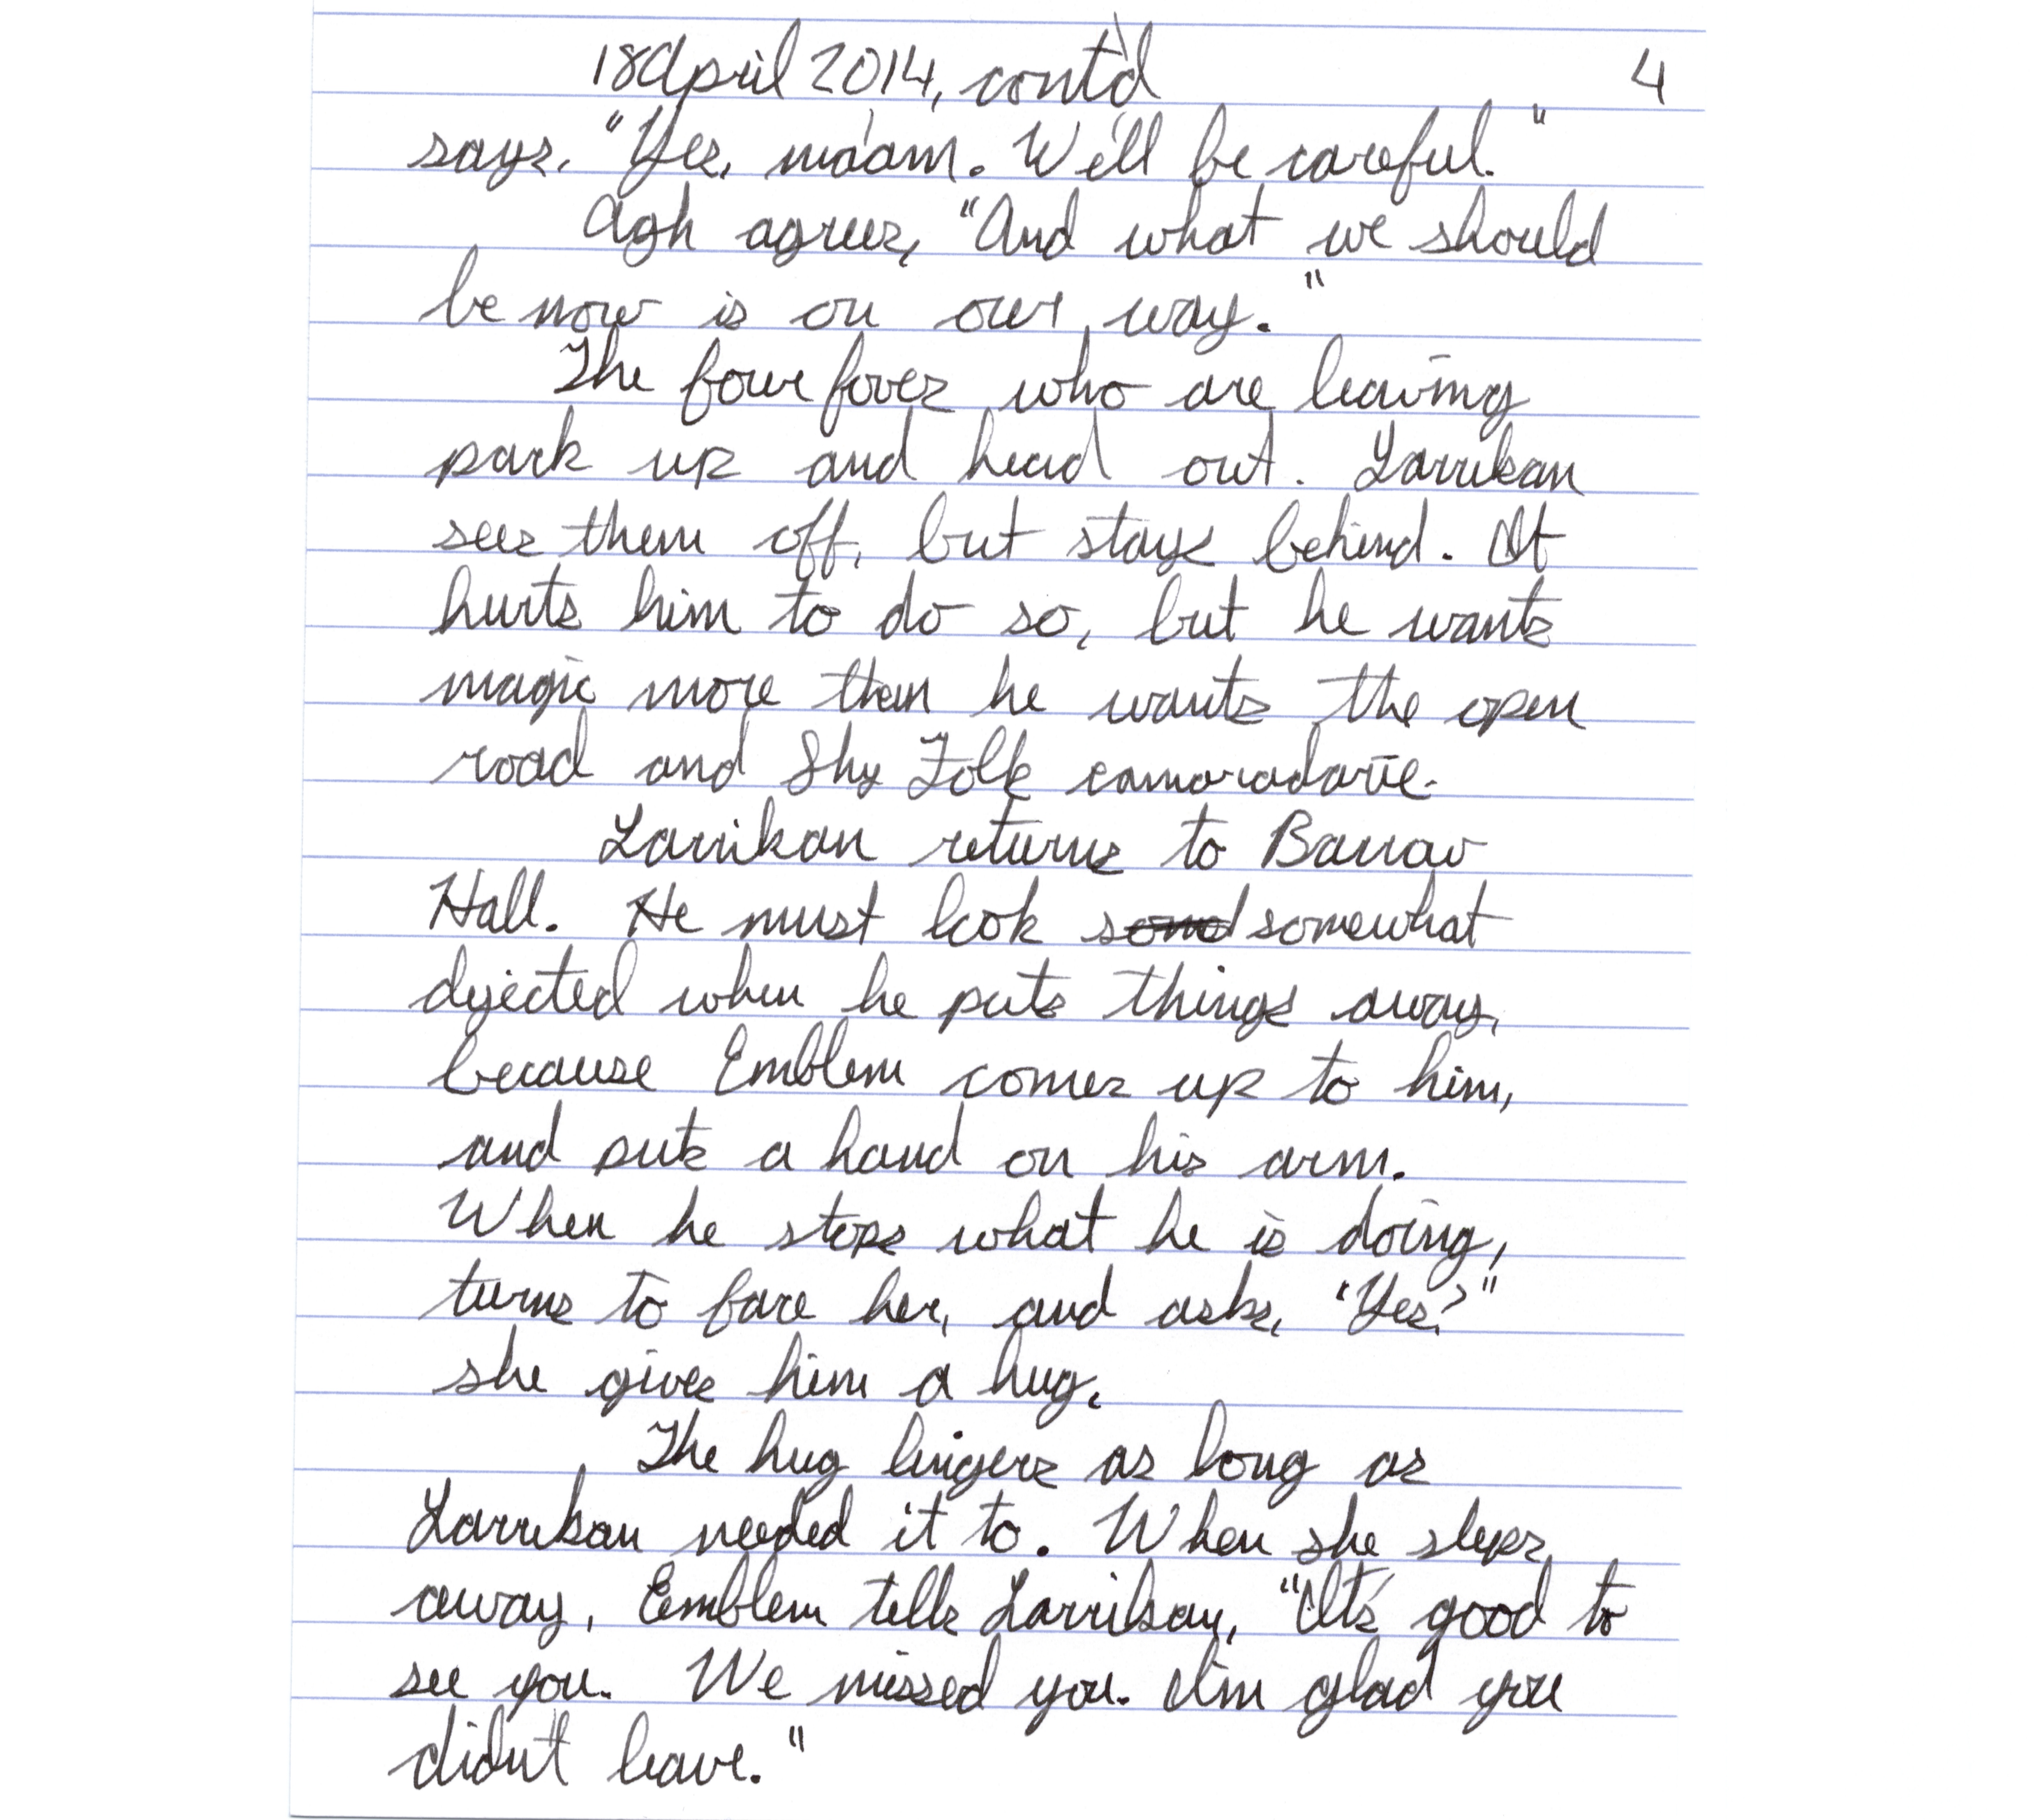 18 April 2014, cont'd 4
says, "Yes, ma'am. We'll be careful."
Agh agrees, "And what we should
be now is on our way."
The four foxes who are leaving
pack up and head out. Larrikan
sees them off, but stays behind. It
hurts him to do so, but he wants
magic more than he wants the open
road and Shy Folk camaradarie.
Larrikan returns to Barrow
Hall. He must look somd somewhat
dejected when he puts things away,
because Emblem comes up to him,
and puts a hand on his arm.
When he stops what he is doing,
turns to face her, and asks, "Yes?"
she gives him a hug.
The hug lingers as long as
Larrikan needed it to. When she steps
away, Emblem tells Larrikan, "It's good to
see you. We missed you. I'm glad you
didn't leave."